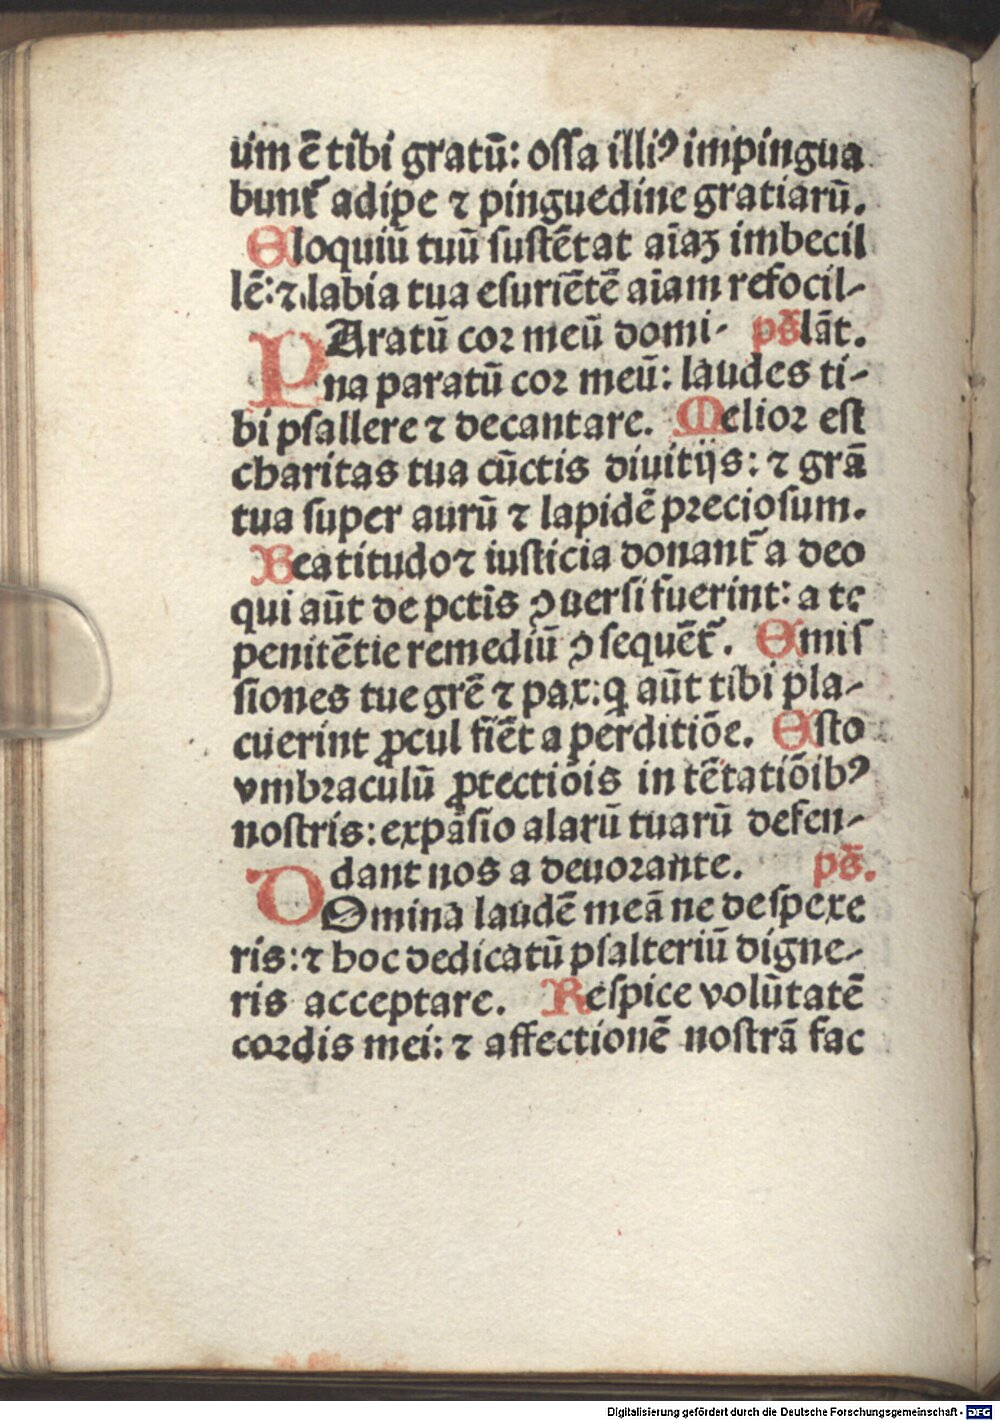 uim ē tibi gratū: oſſa illiꝰ impingua
bunt᷑ adipe ⁊ pinguedine gratiarū.
Eloquiū tuū ſuſtētat aīaꝫ imbecil
lē: ⁊ labia tua eſuriētē aīam refocil-
PAratū coꝛ meū domi- pš lāt.
na paratū coꝛ meū: laudes ti-
bi pſallere ⁊ decantare. Melioꝛ eſt
charitas tua cūctis diuitijs: ⁊ grā
tua ſuper aurū ⁊ lapidē pꝛecioſum.
Beatitudo ⁊ iuſticia donant᷑ a deo
qui aūt de pctīs ꝯuerſi fuerint: a te
penitētie remediū ꝯſequēt᷑. Emiſ
ſiones tue grē ⁊ pax: q aūt tibi pla-
cuerint ꝓcul fiēt a perditiōe. Eſto
vmbꝛaculū ꝓtectiōis in tētatiōibꝰ
noſtris: expāſio alarū tuarū defen-
dant nos a deuoꝛante. pš.
DOmina laudē meā ne deſpexe
ris: ⁊ hoc dedicatū pſalteriū digne-
ris acceptare. Reſpice volūtatē
coꝛdis mei: ⁊ affectionē noſtrā fac
Digitalisierung gefördert durch die Deutsche Forschungsgemeinschaft - DFG